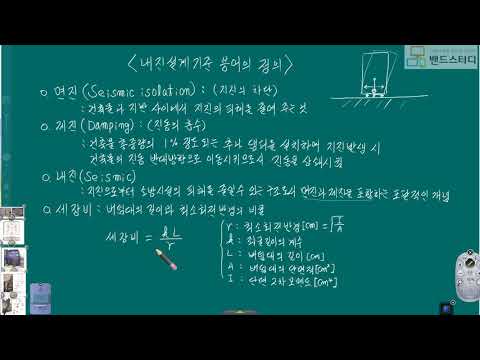 <내진설계기준 용어의 정의>
밴드스터디
o 면진(Seismic isolation) : (지진의 차단)
: 건축물과 지반 사이에서 지진의 피해를 줄여 주는것
o 제진(Damping) : (진동의 흡수)
: 건축물 총중량의 1% 정도되는 추나 댐퍼를 설치하여 지진발생 시
건축물의 진동 반대방향으로 이동시키므로서 진동을 상쇄시킴
o 내진(Seismic)
: 지진으로부터 소방시설의 피해를 줄일수 있는 구조로서 면진과 제진을 포함하는 포괄적인 개념
o 세장비 : 버팀대의 길이와 최소회전반경의 비율
세장비 = kL/r
r : 최소회전반경[cm] = √I/A
k : 좌굴길이의 계수
L : 버팀대의 길이[cm]
A : 버팀대의 단면적[cm²]
I : 단면 2차 모멘트[cm⁴]